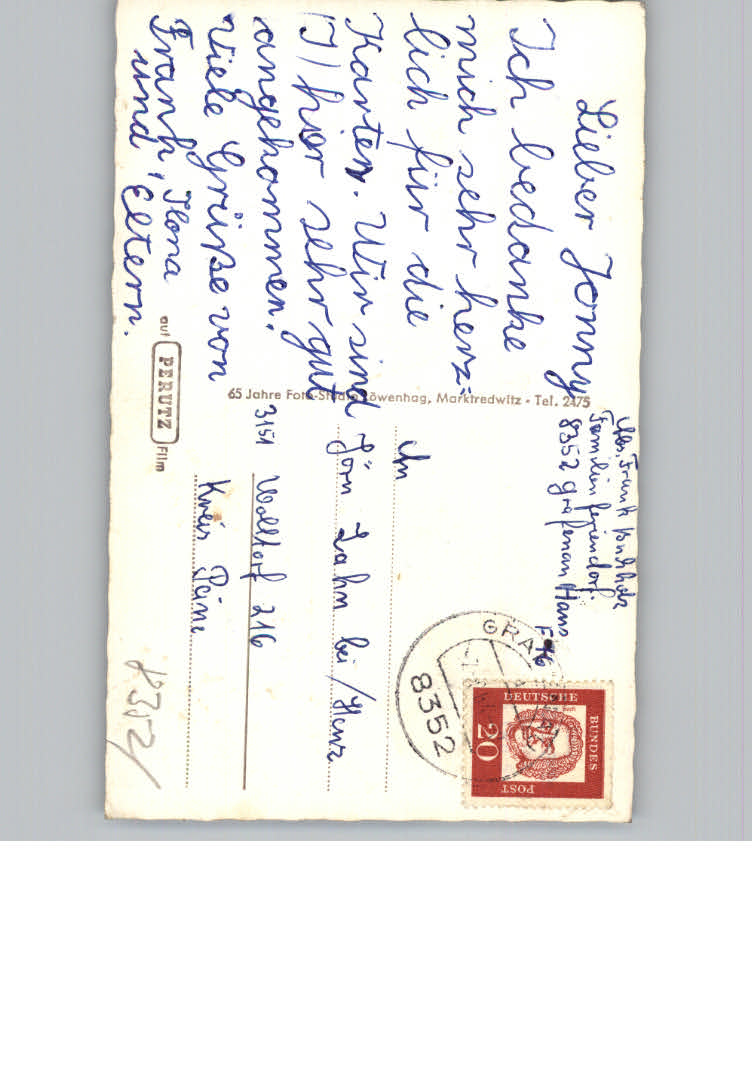 Lieber Jonny
Ich bedanke
mich sehr herz-
lich für die
Karten. Wir sind
(7) hier sehr gut
angekommen.
Viele Grüße von
Frank, Ilona
und Eltern.
65 Jahre Foto-Studio Löwenhag, Marktredwitz · Tel. 2475
auf PERUTZ Film
Abs. Frank Buchholz
Familienferiendorf
8352 Grafenau Haus
F 16
An
Jörn Zahn bei /
3151 Woltorf 216
Kreis Peine
8352
GRAFENAU
8352
DEUTSCHE
BUNDES
POST
20